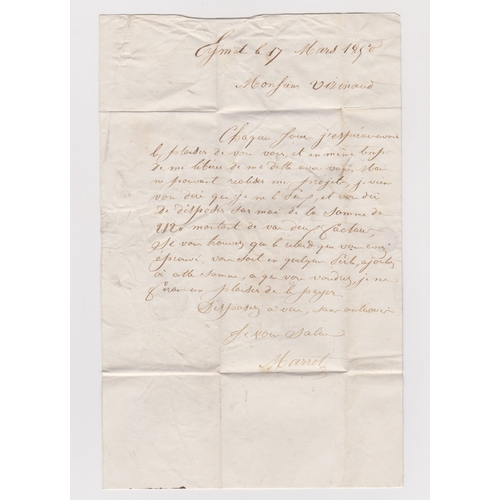 le 17 Mars 1850
Monsieur
Chaque jour j'espère avoir
le plaisir de vous voir, et en même temps
de me libérer de ma dette avec vous, Mais
ne pouvant réaliser mes projets, je viens
vous dire que je et vous
de disposer sur moi de la somme de
montant de vos deux factures
Si vous trouvez que le retard que vous avez
éprouvé, vous soit en quelque ajoutez
à cette somme, ce que vous voudrez, je me
ferai un plaisir de le payer.
à vous,
Je vous salue
Marrot